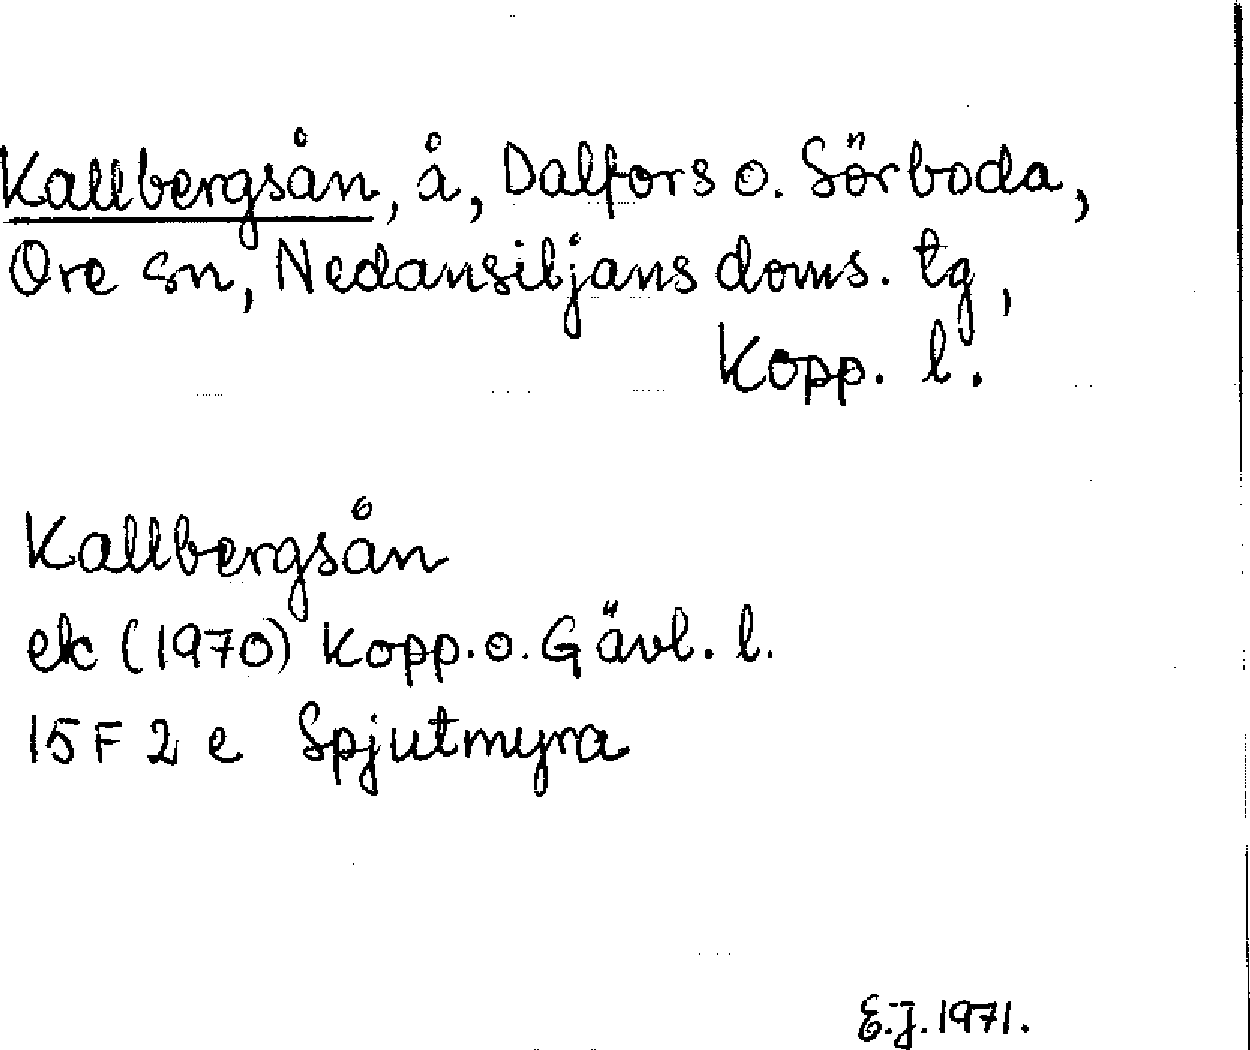 Kallbergsån, å, Dalfors o. Sörboda,
Ore sn, Nedansiljans doms. tg,
Kopp. l.
Kallbergsån
ek (1970) Kopp. o. Gävl. l.
15 F 2 e Spjutmyra
E.J. 1971.